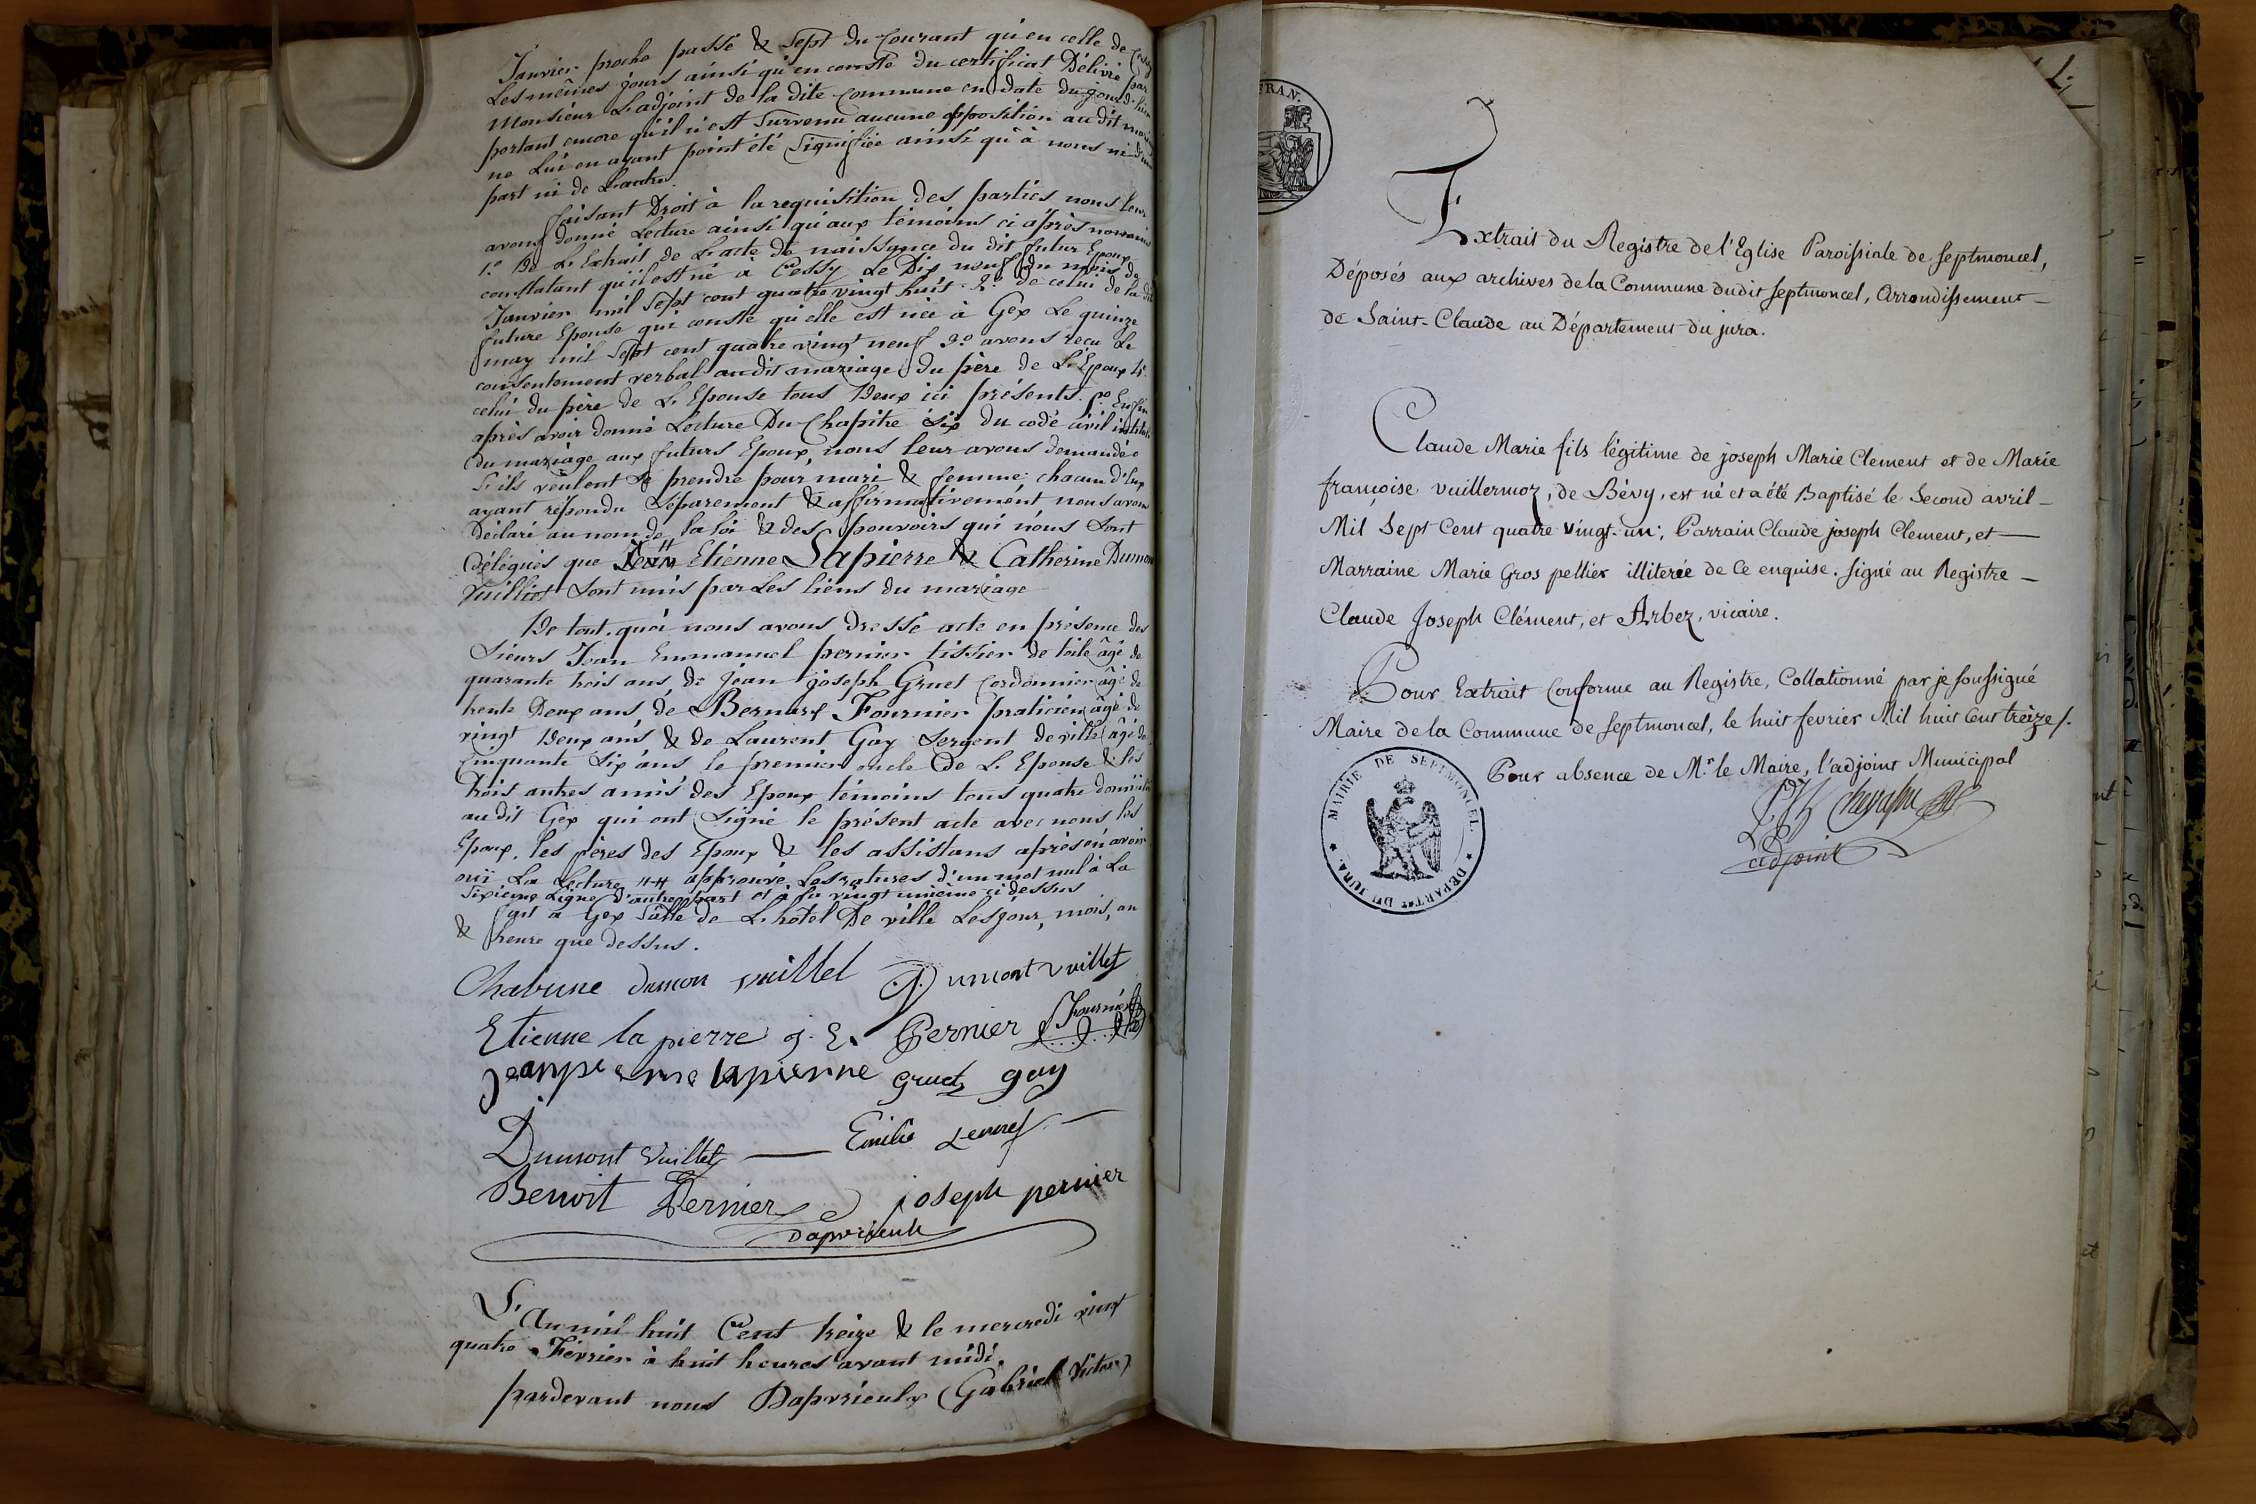 Janvier proche passé & sept du courant qu'en celle de Cessy
Les mêmes jours ainsi qu'en conste du certificat Délivré par
Monsieur L'adjoint de la dite Commune en date du jour d'hier
portant encore qu'il n'est survenu aucune opposition au dit
ne Lui en ayant point été signifiée ainsi qu'à nous ni d'une
part ni de L'autre.
faisant Droit à la requisition des parties nous leur
avons donné Lecture ainsi qu'aux témoins ci après nommés
1.º De L'Extrait de L'acte de naissance du dit futur Epoux
constatant qu'il est né à Cessy Le Dix neuf du mois de
Janvier mil sept cent quatre vingt huit. 2.º de celui de la dite
future Epouse qui conste qu'elle est née à Gex Le quinze
may mil sept cent quatre vingt neuf 3.º avons reçu Le
consentement verbal audit mariage du père de L'Epoux 4.º
celui du père de L'Epouse tous Deux ici présents. 5.º Enfin
après avoir donné Lecture Du Chapitre six du code civil intitulé
du mariage aux futurs Epoux, nous leur avons demandé
S'ils veulent se prendre pour mari & femme: chacun d'Eux
ayant répondu séparement & affirmativement nous avons
Déclaré au nom de la loi & des pouvoirs qui nous sont
délégués que Etienne Lapierre & Catherine Dumont
Vuilliet sont unis par Les liens du mariage
De tout quoi nous avons dressé acte en présence des
Sieurs Jean Emmanuel pernier tissier de toile âgé de
quarante trois ans, de Jean joseph Gruet Cordonnier âgé de
trente Deux ans, de Bernard Fournier praticien âgé de
vingt Deux ans & de Laurent Gay Sergent de ville âgé de
Cinquante Six ans le premier oncle de L'Epouse & les
trois autres amis des Epoux témoins tous quatre domiciliés
audit Gex qui ont signé le présent acte avec nous les
Epoux, les pères des Epoux & les assistans après en avoir
ouï La Lecture approuvé Les ratures d'un mot nul à La
Sixieme Ligne d'autre part et à la vingt unieme ci dessus
fait à Gex Salle de L'hôtel De ville Les jour, mois, an
& heure que dessus.
Chatrine dumon vuillel Dumont vuillet
Etienne la pierre j. E. Pernier Fournier
jeanpierre lapierre gruet gay
Dumont Vuillet Emilie
Benoit Pernier joseph pernier
L'An mil huit Cent treize & le mercredi vingt
quatre Fevrier à huit heures avant midi.
pardevant nous (Gabriel Victor)
FRAN.
Extrait du Registre de l'Eglise Paroissiale de Septmoncel,
Déposés aux archives de la Commune dudit Septmoncel, Arrondissement
de Saint-Claude au Département du jura.
Claude Marie fils légitime de joseph Marie Clement et de Marie
françoise vuillermoz, de Bévy, est né et a été Baptisé le Second avril
Mil Sept Cent quatre Vingt-un; Parrain Claude joseph Clement, et
Marraine Marie Gros pellier illiterée de Ce enquise. Signé au Registre
Claude Joseph Clément, et Arbez, vicaire.
Pour Extrait Conforme au Registre, Collationné par je soussigné
Maire de la Commune de Septmoncel, le huit fevrier Mil huit Cent treize /.
Pour absence de M.r le Maire, l'adjoint Municipal
adjoint
MAIRIE DE SEPTMONCEL. ★ DÉPART.NT DU JURA. ★